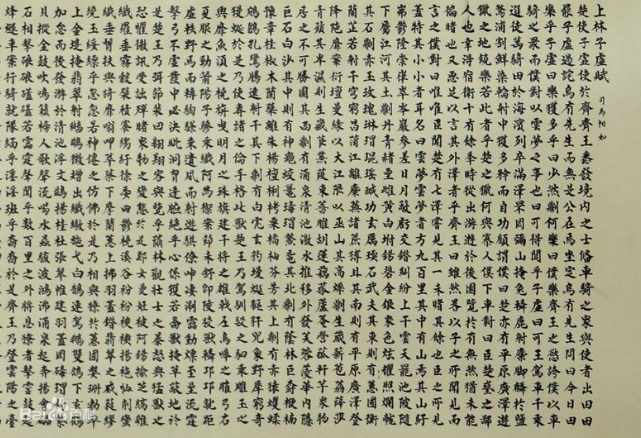 上林子虛賦 司馬相如
楚使子虛使於齊齊王悉發境內之士備車騎之衆與使者出田田
罷子虛過詫烏有先生而無是公在焉坐定烏有先生問曰今日田
樂乎子虛曰樂獲多乎曰少然則何樂曰僕樂齊王之欲誇僕以車
騎之衆而僕對以雲夢之事也曰可得聞乎子虛曰可王駕車千乘
選徒萬騎田於海濱列卒滿澤罘罔彌山掩兔轔鹿射麋脚麟於鹽
騖浦割鮮染輪射中獲多矜而自功顧謂僕曰楚亦有平原廣澤遊
獵之地饒樂若此者乎楚王之獵何與寡人僕下車對曰臣楚國之鄙
人也幸得宿衛十有餘年時從出遊遊於後園覽於有無然猶未能
徧睹也又惡足以言其外澤者乎齊王曰雖然略以子之所聞見而
言之僕對曰唯唯臣聞楚有七澤嘗見其一未睹其餘也臣之所見
蓋特其小小者耳名曰雲夢雲夢者方九百里其中有山焉其山紆
岪鬱隆崇嵂崒岑崟參差日月蔽虧交錯糾紛上干青雲罷池陂陁
下屬江河其土則丹青赭堊雌黃白坿錫碧金銀衆色炫耀照爛龍
其石則赤玉玫瑰琳瑉琨珸瑊玏玄厲瑌石武夫其東則有蕙圃衡
蘭芷若射干穹窮昌蒲江離麋蕪諸蔗猼且其南則有平原廣澤登
降陁靡案衍壇曼緣以大江限以巫山其高燥則生葴菥苞荔薛莎
青薠其卑濕則生藏莨蒹葭東薔雕胡蓮藕菰蘆菴䕡軒芋衆物
居之不可勝圖其西則有涌泉清池激水推移外發芙蓉菱華內隱
巨石白沙其中則有神龜蛟鼉瑇瑁鱉黿其北則有陰林巨樹楩楠
豫章桂椒木蘭蘗離朱楊樝梨梬栗橘柚芬芳其上則有赤猿蠷蝚
鵷鶵孔鸞騰遠射干其下則有白虎玄豹蟃蜒貙豻兕象野犀窮奇
獌狿於是乃使專諸之倫手格此獸楚王乃駕馴駁之駟乘雕玉之
輿靡魚須之橈旃曳明月之珠旗建干將之雄戟左烏嘷之雕弓右
夏服之勁箭陽子驂乘纖阿為御案節未舒即陵狡獸轔邛邛蹴距
虛軼野馬而轊騊駼乘遺風而射遊騏倏眒凄浰雷動熛至星流霆
擊弓不虛發中必決眦洞胸達腋絕乎心繫獲若雨獸掩草蔽地於
是楚王乃弭節裴回翱翔容與覽乎陰林觀壯士之暴怒與猛獸之
恐懼徼受詘殫睹衆物之變態於是鄭女曼姬被阿錫揄紵縞雜
纖羅垂霧縠襞積褰縐紆徐委曲鬱橈谿谷衯衯裶裶揚袘恤削蜚
纖垂髾扶與猗靡噏呷萃蔡下摩蘭蕙上拂羽蓋錯翡翠之威蕤繆
繞玉綏縹乎忽忽若神僊之仿佛於是乃相與獠於蕙圃媻珊勃窣
上金堤掩翡翠射鵕鸃微矰出纖繳施弋白鵠連鴐鵝雙鶬下玄鶴
加怠而後發游於清池浮文鷁揚桂枻張翠帷建羽蓋罔瑇瑁釣紫
貝摐金鼓吹鳴籟榜人歌聲流喝水蟲駭波鴻沸涌泉起奔揚會礧
石相擊硠硠磕磕若雷霆聲聞乎數百里之外將息獠者擊靈鼓起
烽燧車案行騎就隊纚乎淫淫班乎裔裔於是楚王乃登雲陽之臺
Bai百科